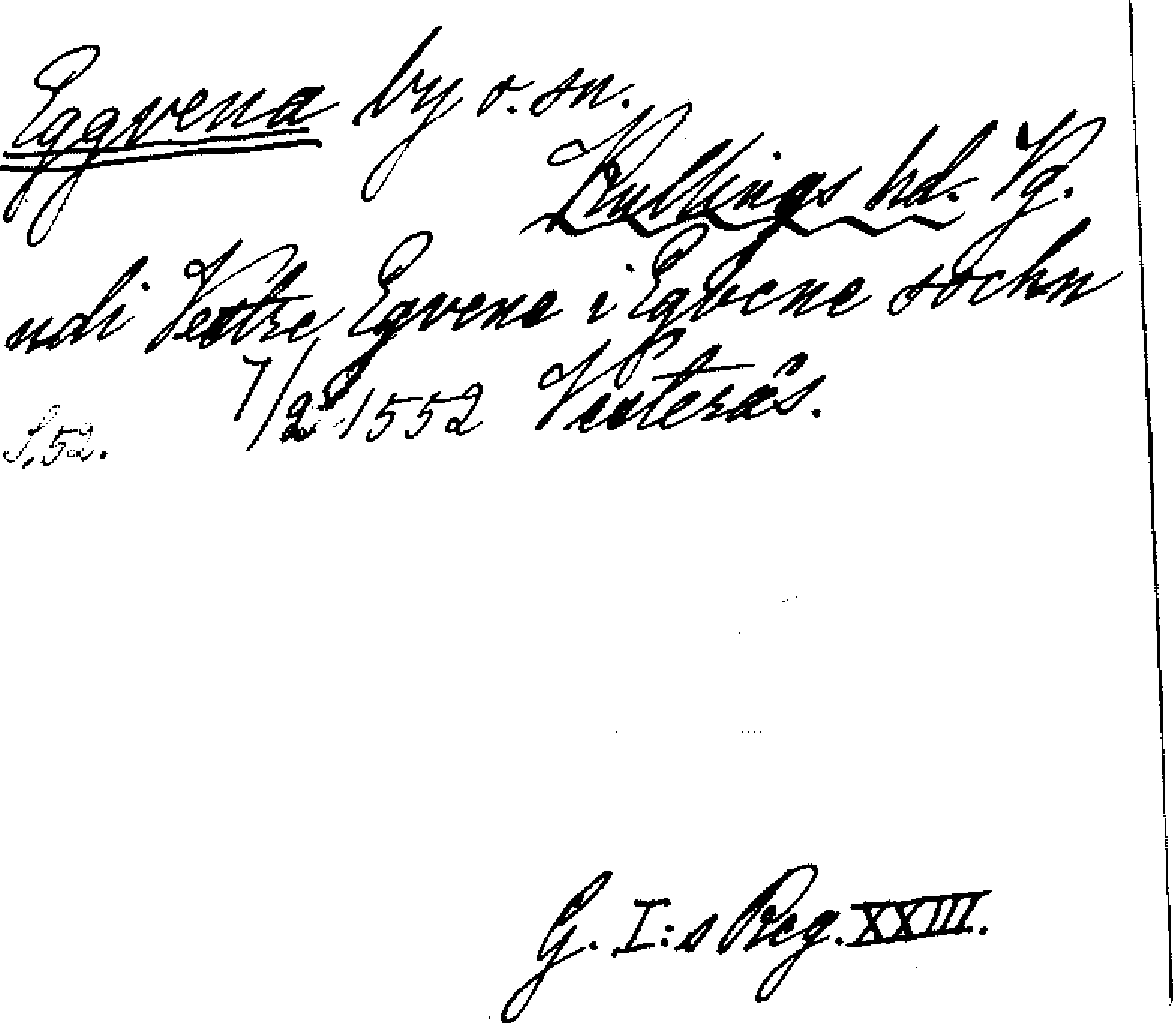 Eggvena by o. sn.
Kullings hd. Vg.
udi Vestre Egvene i Egvene sochn
S. 52. 7/2 1552 Vinterås.
G. I:s Reg. XXIII.